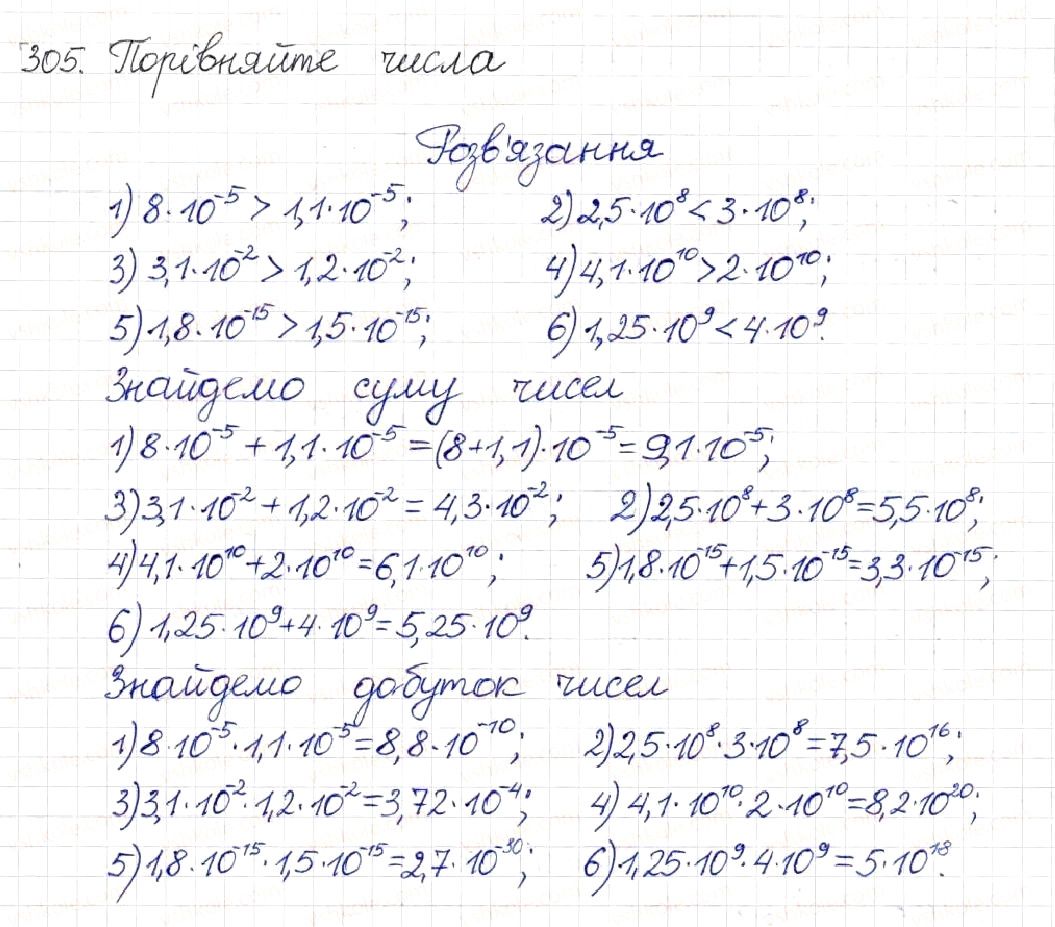 305. Порівняйте числа
Розв'язання
1) 8·10⁻⁵ > 1,1·10⁻⁵; 2) 2,5·10⁸ < 3·10⁸;
3) 3,1·10⁻² > 1,2·10⁻²; 4) 4,1·10¹⁰ > 2·10¹⁰;
5) 1,8·10⁻¹⁵ > 1,5·10⁻¹⁵; 6) 1,25·10⁹ < 4·10⁹.
Знайдемо суму чисел
1) 8·10⁻⁵ + 1,1·10⁻⁵ = (8+1,1)·10⁻⁵ = 9,1·10⁻⁵;
3) 3,1·10⁻² + 1,2·10⁻² = 4,3·10⁻²; 2) 2,5·10⁸ + 3·10⁸ = 5,5·10⁸;
4) 4,1·10¹⁰ + 2·10¹⁰ = 6,1·10¹⁰; 5) 1,8·10⁻¹⁵ + 1,5·10⁻¹⁵ = 3,3·10⁻¹⁵;
6) 1,25·10⁹ + 4·10⁹ = 5,25·10⁹.
Знайдемо добуток чисел
1) 8·10⁻⁵·1,1·10⁻⁵ = 8,8·10⁻¹⁰; 2) 2,5·10⁸·3·10⁸ = 7,5·10¹⁶;
3) 3,1·10⁻²·1,2·10⁻² = 3,72·10⁻⁴; 4) 4,1·10¹⁰·2·10¹⁰ = 8,2·10²⁰;
5) 1,8·10⁻¹⁵·1,5·10⁻¹⁵ = 2,7·10⁻³⁰; 6) 1,25·10⁹·4·10⁹ = 5·10¹⁸.